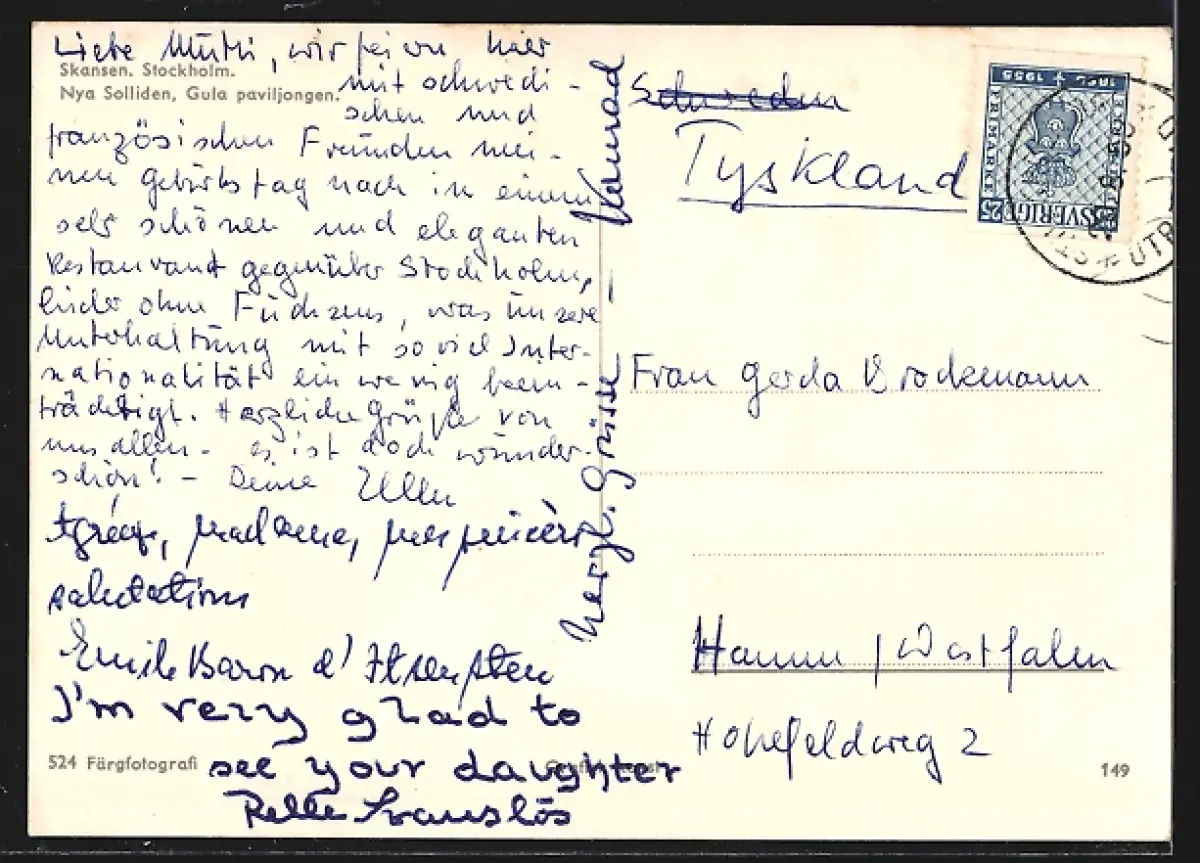 Liebe Mutti, wir feiern hier
Skansen. Stockholm.
mit schwedi-
Nya Solliden, Gula paviljongen.
schen und
französischen Freunden mei-
nen Geburtstag nach in einem
sehr schönen und eleganten
Restaurant gegenüber Stockholm,
leider ohne, was unsere
Unterhaltung mit soviel Inter-
nationalität ein wenig beein-
trächtigt. Herzliche Grüße von
uns allen - es ist doch wunder-
schön! - Deine
Agréez, madame, mes sincères
salutations
Emile Baron d'
I'm very glad to
see your daughter
Pelle Svanslös
524 Färgfotografi
Herzl. Grüsse - Konrad
Schweden
Tyskland
1855 1955
FRIMÄRKE
SVERIGE
25
UTR
Frau Gerda Brockmann
Hamm / Westfalen
Hohefeldweg 2
149